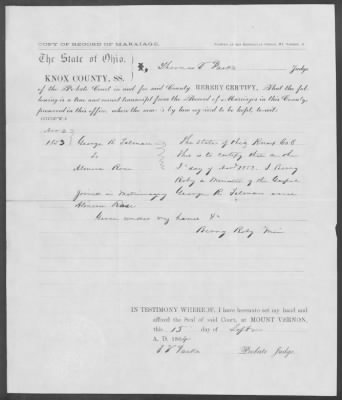 COPY OF RECORD OF MARRIAGE.
The State of Ohio,
KNOX COUNTY, SS.
I, Thomas V Parke Judge
of the Probate Court in and for said County HEREBY CERTIFY, That the fol-
lowing is a true and correct transcript from the Record of Marriages in this County,
preserved in this office, where the same is by law required to be kept, to wit:
[COPY.]
1853 George R. Tilman The State of Ohio Knox Co
To This is to certify that on the
Almira Rose 1st day of Nov 1853. I Benj
a Minister of the Gospel
Joined in Matrimony George R. Tilman and
Almira Rose
Given under my hand &c
Min
IN TESTIMONY WHEREOF, I have hereunto set my hand and
affixed the Seal of said Court, at MOUNT VERNON,
this 15 day of Septr
A. D. 1864
T V Parke Probate Judge.